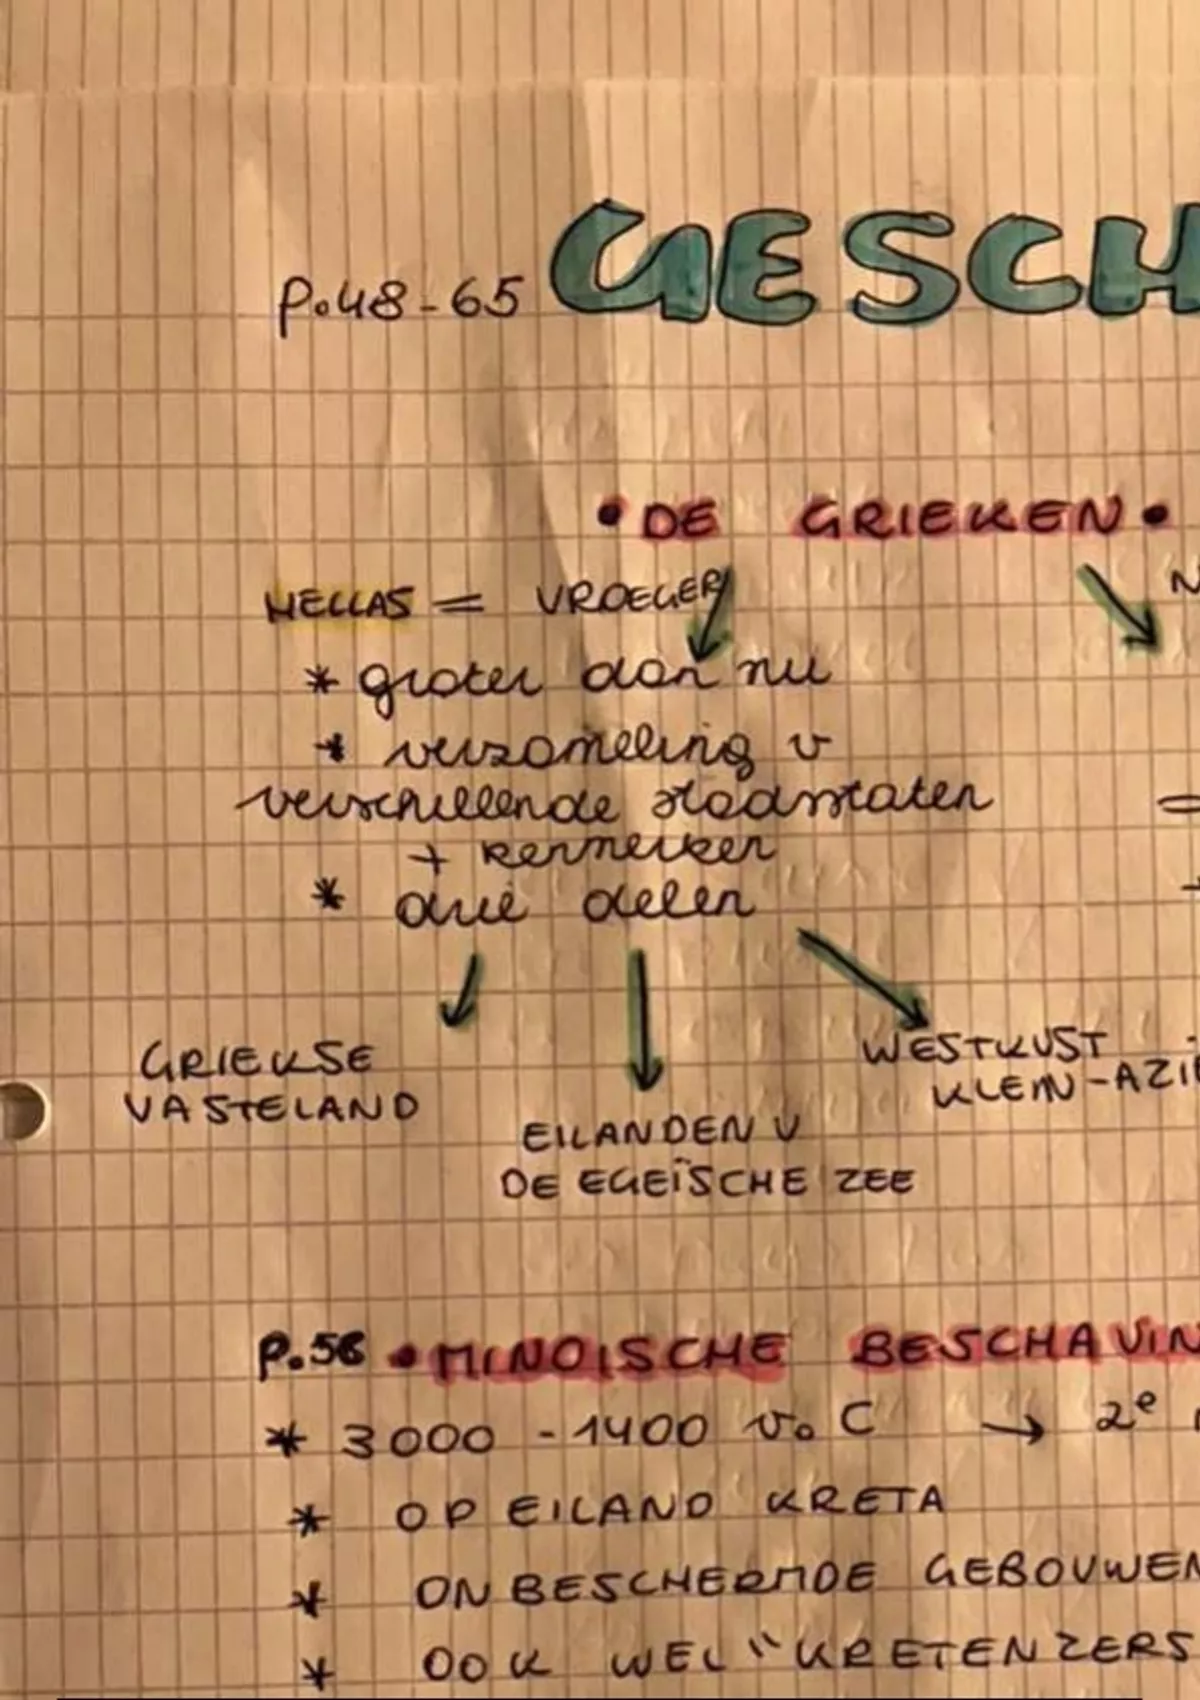 p.48-65 GESCH
• DE GRIEKEN •
HELLAS = VROEGER
* groter dan nu
* verzameling v
verschillende stadstaten
+ kenmerken
* drie delen
GRIEKSE
VASTELAND
EILANDEN V
DE EGEÏSCHE ZEE
WESTKUST
KLEIN-AZIË
p.56 • MINOISCHE BESCHAVIN
* 3000 - 1400 v. C → 2e
* OP EILAND KRETA
* ONBESCHERMDE GEBOUWEN
* OOK WEL "KRETENZERS